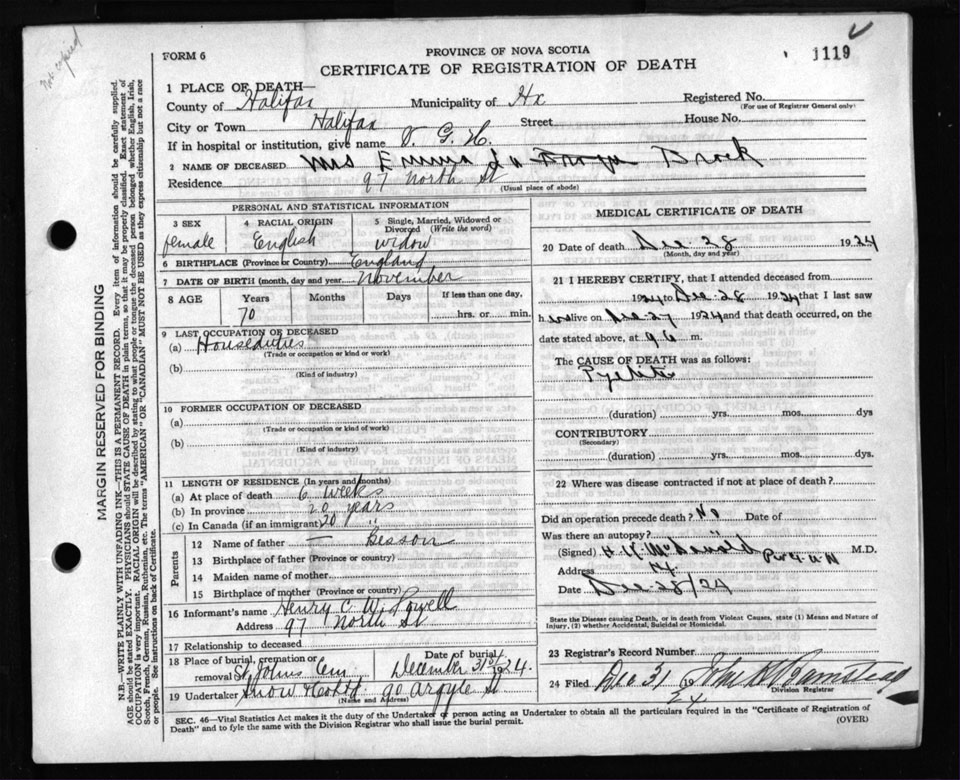 Not copied
FORM 6
PROVINCE OF NOVA SCOTIA
1119
CERTIFICATE OF REGISTRATION OF DEATH
1 PLACE OF DEATH—
County of Halifax Municipality of Hx Registered No.
(For use of Registrar General only)
City or Town Halifax Street House No.
If in hospital or institution, give name V. G. H.
2 NAME OF DECEASED Mrs Emma Brock
Residence 97 North St
(Usual place of abode)
PERSONAL AND STATISTICAL INFORMATION
3 SEX female
4 RACIAL ORIGIN English
5 Single, Married, Widowed or Divorced (Write the word) widow
6 BIRTHPLACE (Province or Country) England
7 DATE OF BIRTH (month, day and year) November
8 AGE Years Months Days If less than one day,
70 hrs. or min.
9 LAST OCCUPATION OF DECEASED
(a) Houseduties
(Trade or occupation or kind or work)
(b)
(Kind of industry)
10 FORMER OCCUPATION OF DECEASED
(a)
(Trade or occupation or kind or work)
(b)
(Kind of industry)
11 LENGTH OF RESIDENCE (In years and months)
(a) At place of death 6 weeks
(b) In province 20 years
(c) In Canada (if an immigrant) 20 "
Parents
12 Name of father — Besson
13 Birthplace of father (Province or country)
14 Maiden name of mother
15 Birthplace of mother (Province or country)
16 Informant's name Henry C. W. Powell
Address 97 North St
17 Relationship to deceased
18 Place of burial, cremation or removal St Johns Cem Date of burial December 31st 1924
19 Undertaker Snow & Co Ltd 90 Argyle St
(Name and Address)
MEDICAL CERTIFICATE OF DEATH
20 Date of death Dec 28 1924
(Month, day and year)
21 I HEREBY CERTIFY, that I attended deceased from
1924 to Dec 28 1924 that I last saw
h er alive on Dec 27 1924 and that death occurred, on
date stated above, at m.
The CAUSE OF DEATH was as follows:
(duration) yrs. mos. dys
CONTRIBUTORY
(Secondary)
(duration) yrs. mos. dys.
22 Where was disease contracted if not at place of death?
Did an operation precede death? No Date of
Was there an autopsy?
(Signed) McDonald M.D.
Address
Date Dec 28/24
State the Disease causing Death, or in death from Violent Causes, state (1) Means and Nature of Injury, (2) whether Accidental, Suicidal or Homicidal.
23 Registrar's Record Number
24 Filed Dec 31 24 John
Division Registrar
SEC. 46—Vital Statistics Act makes it the duty of the Undertaker or person acting as Undertaker to obtain all the particulars required in the "Certificate of Registration of
Death" and to fyle the same with the Division Registrar who shall issue the burial permit. (OVER)
MARGIN RESERVED FOR BINDING
N.B.—WRITE PLAINLY WITH UNFADING INK—THIS IS A PERMANENT RECORD. Every item of information should be carefully supplied.
AGE should be stated EXACTLY. PHYSICIANS should STATE CAUSE OF DEATH in plain terms, so that it may be properly classified. Exact statement of
OCCUPATION is very important. RACIAL ORIGIN will be described by stating to what people or tongue the deceased person belonged whether English, Irish,
Scotch, French, German, Russian, Ruthenian, etc. The terms "AMERICAN" OR "CANADIAN" MUST NOT BE USED as they express citizenship but not a race
or people. See instructions on back of Certificate.